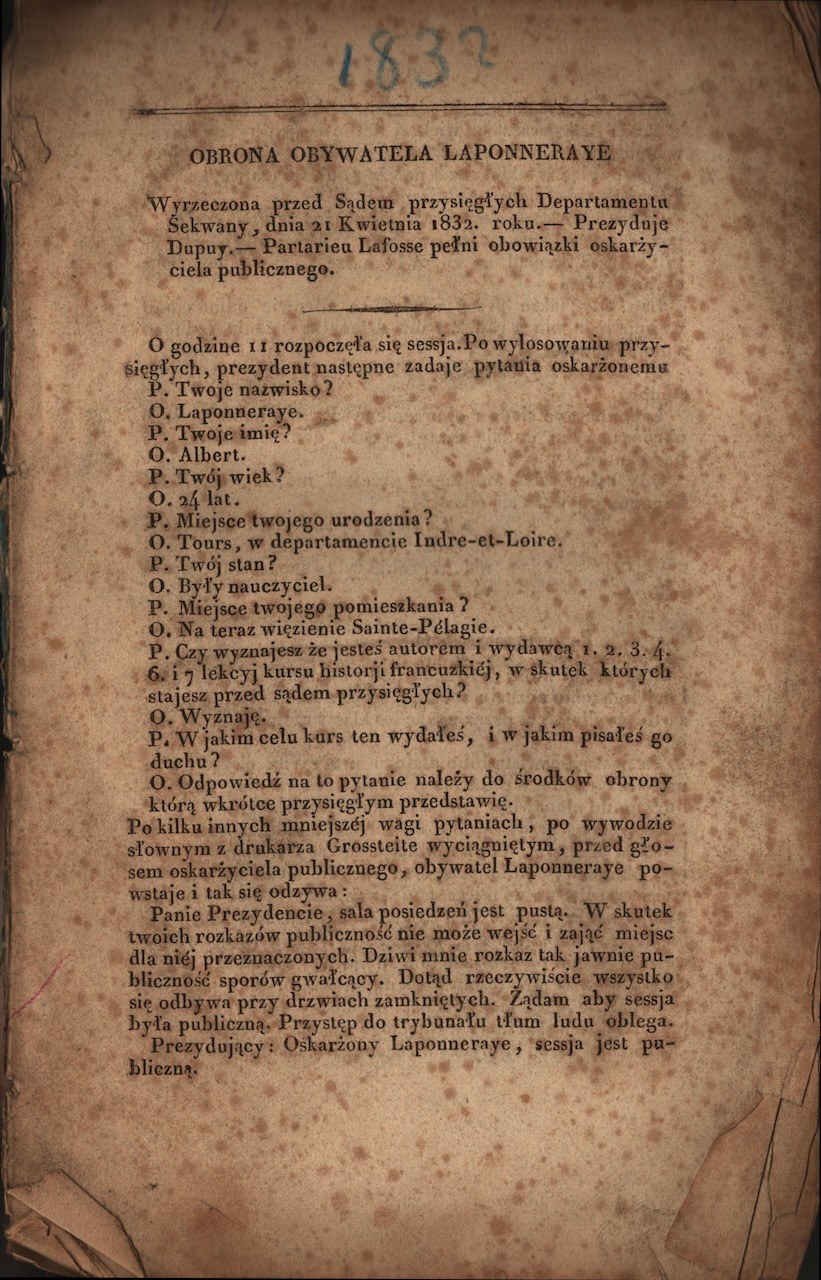 1832
OBRONA OBYWATELA LAPONNERAYE
Wyrzeczona przed Sądem przysięgłych Departamentu
Sekwany, dnia 21 Kwietnia 1832. roku.— Prezyduje
Dupuy.— Partarieu Lafosse pełni obowiązki oskarży-
ciela publicznego.
O godzine 11 rozpoczęła się sessja.Po wylosowaniu przy-
sięgłych, prezydent następne zadaje pytania oskarżonemu
P. Twoje nazwisko?
O. Laponneraye.
P. Twoje imię?
O. Albert.
P. Twój wiek?
O. 24 lat.
P. Miejsce twojego urodzenia?
O. Tours, w departamencie Indre-et-Loire.
P. Twój stan?
O. Były nauczyciel.
P. Miejsce twojego pomieszkania?
O. Na teraz więzienie Sainte-Pélagie.
P. Czy wyznajesz że jesteś autorem i wydawcą 1. 2. 3. 4.
6. i 7 lekcyj kursu historji francuzkiéj, w skutek których
stajesz przed sądem przysięgłych?
O. Wyznaję.
P. W jakim celu kurs ten wydałeś, i w jakim pisałeś go
duchu?
O. Odpowiedź na to pytanie należy do środków obrony
którą wkrótce przysięgłym przedstawię.
Po kilku innych mniejszéj wagi pytaniach, po wywodzie
słownym z drukarza Grossteite wyciągniętym, przed gło-
sem oskarżyciela publicznego, obywatel Laponneraye po-
wstaje i tak się odzywa:
Panie Prezydencie, sala posiedzeń jest pustą. W skutek
twoich rozkazów publiczność nie może wejść i zająć miejsc
dla niéj przeznaczonych. Dziwi mnie rozkaz tak jawnie pu-
bliczność sporów gwałcący. Dotąd rzeczywiście wszystko
się odbywa przy drzwiach zamkniętych. Żądam aby sessja
była publiczną. Przystęp do trybunału tłum ludu oblega.
Prezydujący: Oskarżony Laponneraye, sessja jest pu-
bliczną.